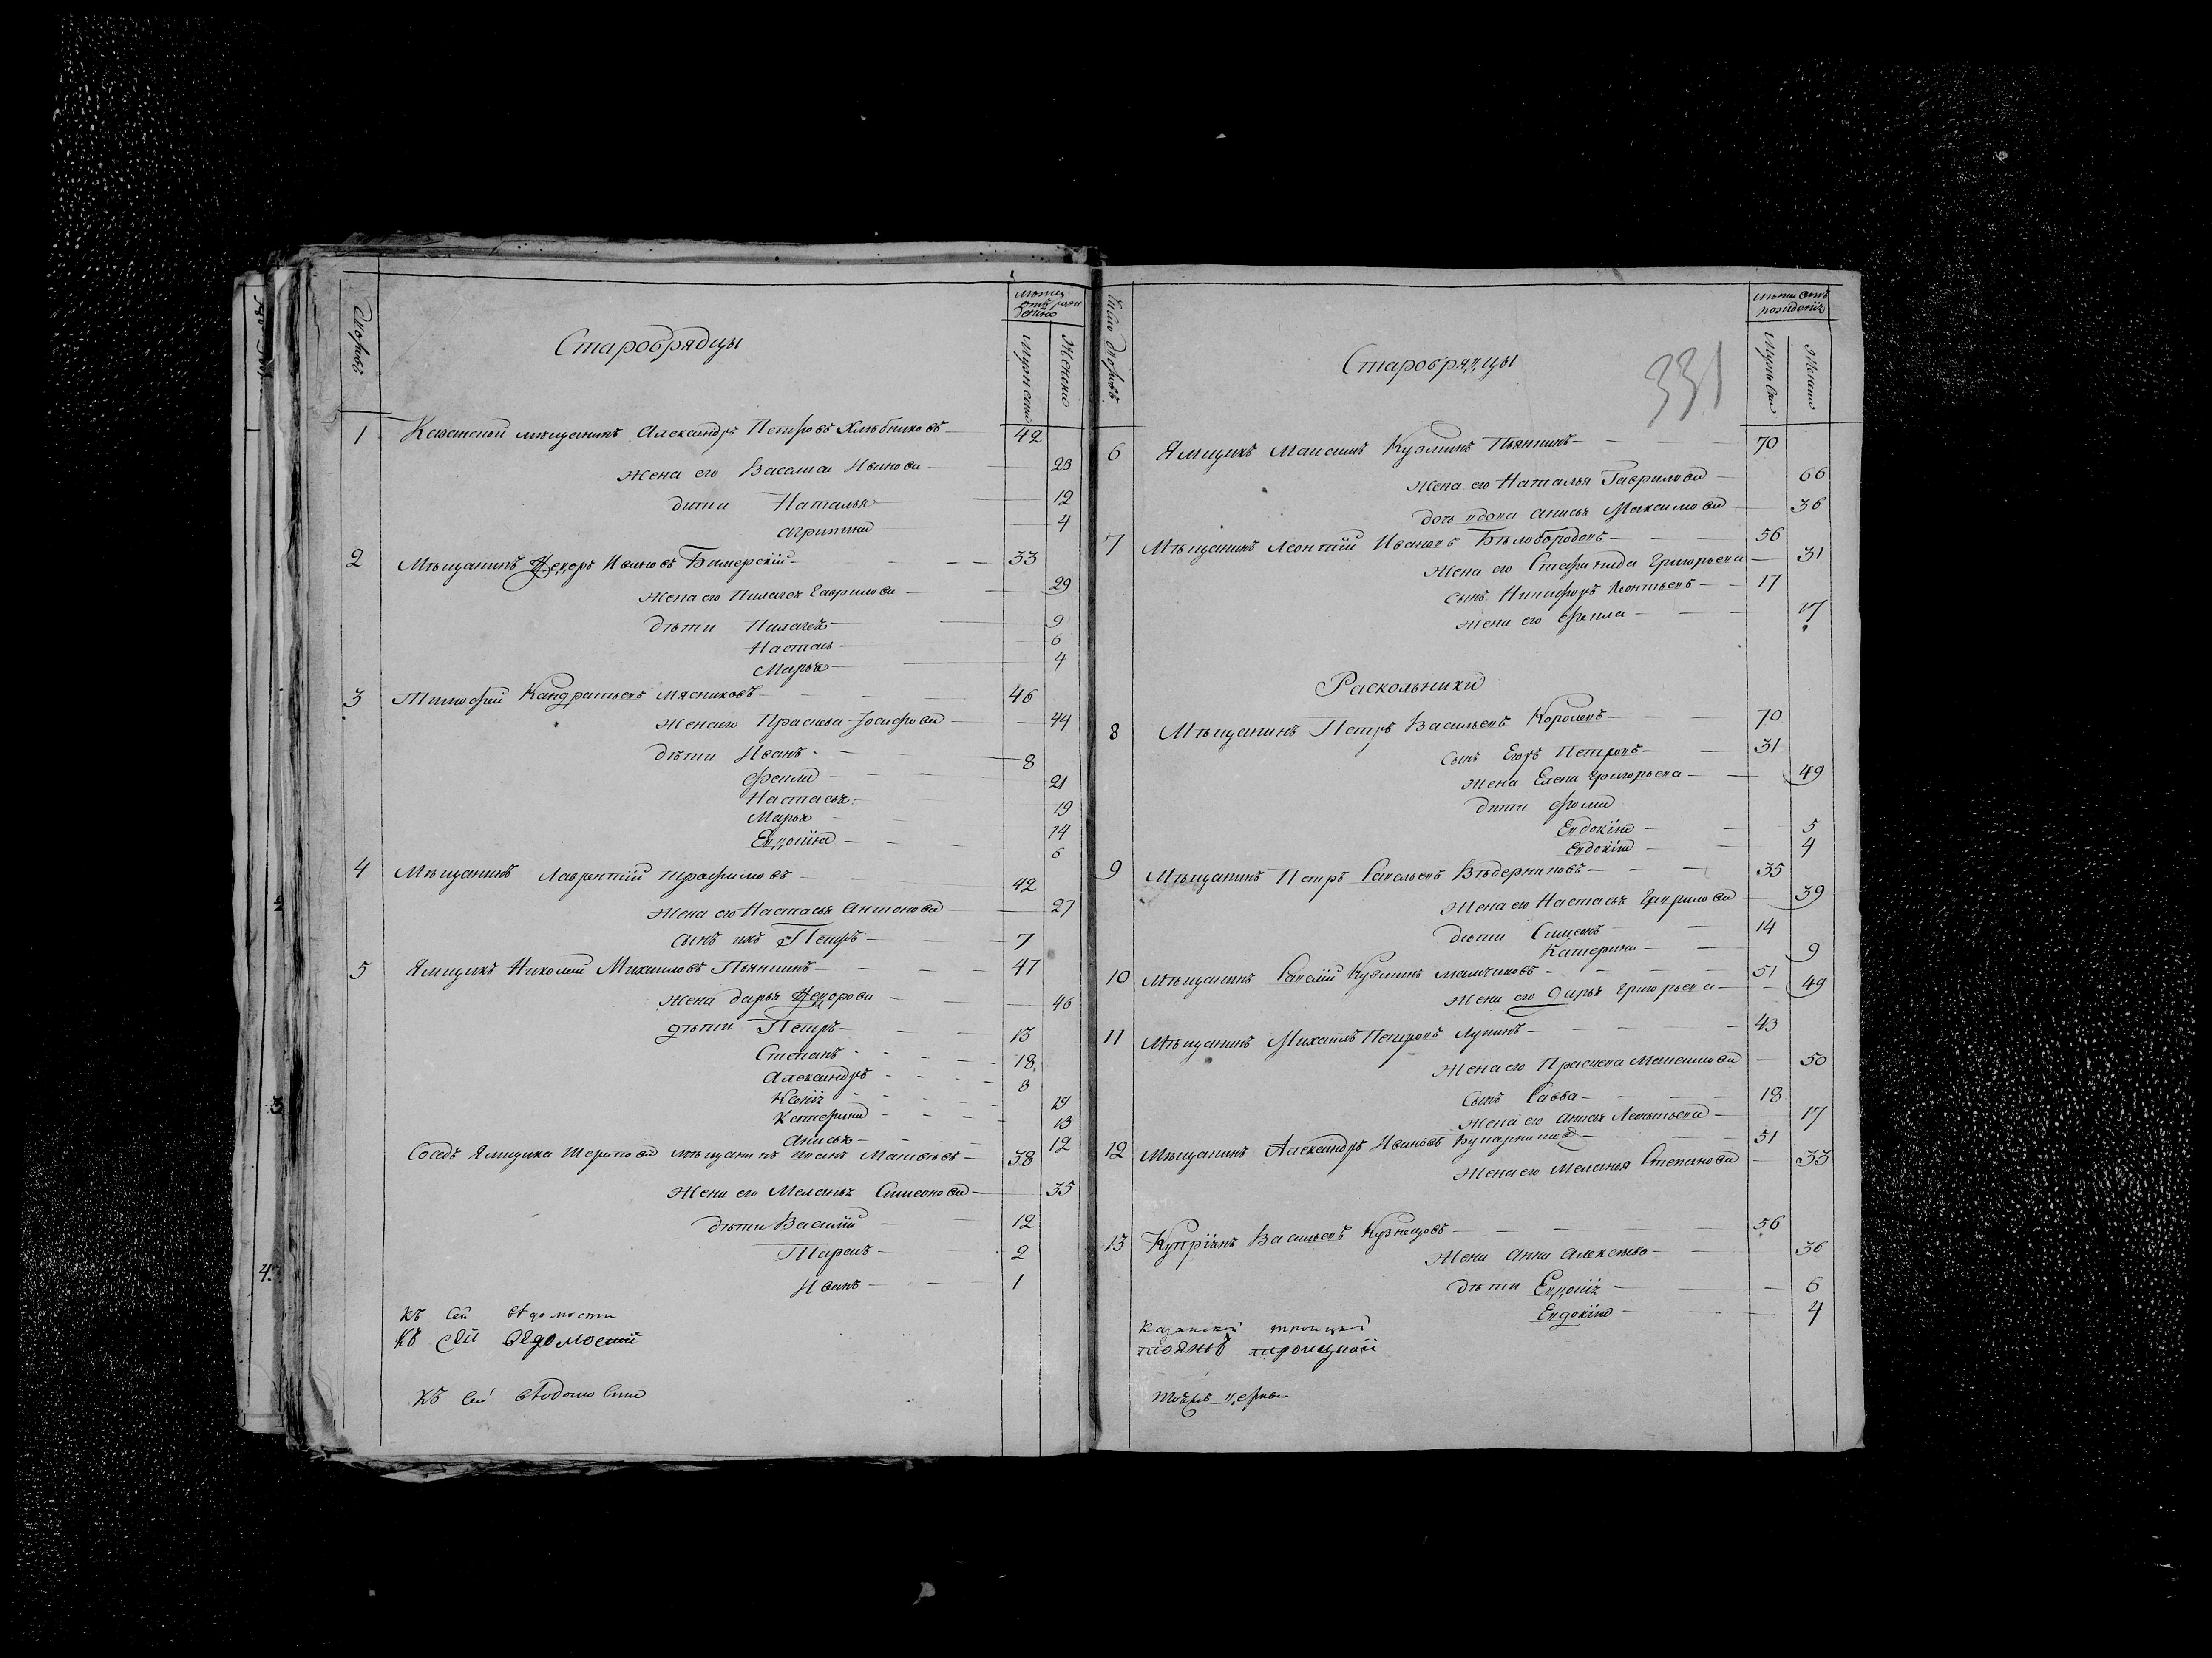 дворовъ
Старобрядцы
лѣты отъ рождения
Мужеска
Женска
1 Казанской мѣщанинъ Александръ Петровъ Хлѣбниковъ 42
Жена его Васелиса Иванова 23
дити Наталья 12
Агрипина 4
2 Мѣщанинъ Ѳедоръ Ивановъ Бимерскій 33
Жена его Пилагея Гаврилова 29
Дѣти Пилагея 9
Настась 6
Марья 4
3 Тимофей Кандратьевъ Мясниковъ 46
Жена его Прасковья Іосифова 44
Дѣти Иванъ 8
Фекла 21
Настасья 19
Марья 14
Евдокiя 6
4 Мѣщанинъ Лаврентiй Трофимовъ 42
Жена его Настасья Антонова 27
сынъ ихъ Петръ 7
5 Ямщикъ Николай Михаиловъ Пьянкинъ 47
Жена Дарья Ѳедорова 46
дѣти Петръ 13
Степанъ 18
Александръ 8
19
Катерина 13
Анисья 12
Сосѣдъ Ямщика мѣщанинъ Иванъ 38
Жена его Меланья Симеонова 35
Дѣти Василiй 12
Тарасъ 2
Иванъ 1
Къ сей вѣдомости
Къ сей ведомости
Къ сей вѣдомости
Число дворовъ
Старобрядцы
331
лѣты отъ рождения
Мужеска
Женска
6 Ямщикъ Максимъ Кузминъ Пьянкинъ 70
Жена его Наталья Гаврилова 66
дочь вдова Анисья Максимова 36
7 Мѣщанинъ Леонтiй Ивановъ Бѣлобородовъ 56
Жена его Стефанида Григорьева 31
сынъ Никифоръ Леонтьевъ 17
Жена его Фекла 17
Раскольники
8 Мѣщанинъ Петръ Васильевъ Королевъ 70
Сынъ Егоръ Петровъ 31
Жена Елена Григорьева 49
дити Фома
Евдокiя 5
Евдокiя 4
9 Мѣщанинъ Петръ Савельевъ Вѣдерниковъ 35
Жена его Настасья Гаврилова 39
Дѣти Симеонъ 14
Катерина 9
10 Мѣщанинъ Савелiй Кузминъ 51
Жена его Дарья Григорьева 49
11 Мѣщанинъ Михаилъ Петровъ Лупинъ 43
Жена его Прасковья Максимова 50
Сынъ Савва 18
Жена его Анисья Леонтьева 17
12 Мѣщанинъ Александръ Ивановъ 51
Жена его Меланья Степанова 33
13 Купрiянъ Васильевъ Кузнецовъ 56
Жена Анна Алексѣева 36
Дѣти Евдокiя 6
Евдокiя 4
Казанской троицкой
троицкой
церкви